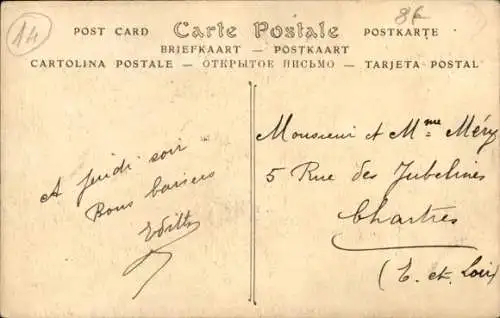 14
8f
POST CARD Carte Postale POSTKARTE
BRIEFKAART — POSTKAART
CARTOLINA POSTALE — ОТКРЫТОЕ ПИСЬМО — TARJETA POSTAL
A jeudi soir
Bons baisers
Edith
Monsieur et Mme Méry
5 Rue des Jubelines
Chartres
(E. et Loir